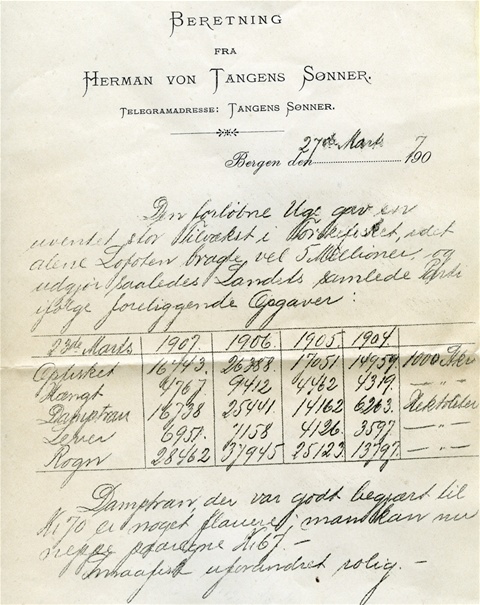 BERETNING
FRA
HERMAN VON TANGENS SØNNER.
TELEGRAMADRESSE: TANGENS SØNNER.
27de Marts 7
Bergen den 190
Den forløbne Uge gav en
uventet stor Tilvækst i Torskefisket, idet
alene Lofoten bragte vel 5 Millioner, og
udgjør saaledes Landets samlede Parti
ifølge foreliggende Opgaver:
23de Marts 1907. 1906. 1905. 1904.
Opfisket 16443. 26388. 17051. 14959. 1000 Stkr
Hængt 4767. 9412 4462 4319. — " —
Damptran 16738 25441. 14162 6263. Hektoliter
Lever 6957. 1158 4126. 3597. — " —
Rogn 28462 37945 25123 13797. — " —
Damptran, der var godt begjært til
K. 70 er noget flauere; man kan nu
neppe paaregne K. 67. —
Smaafisk uforandret rolig. —